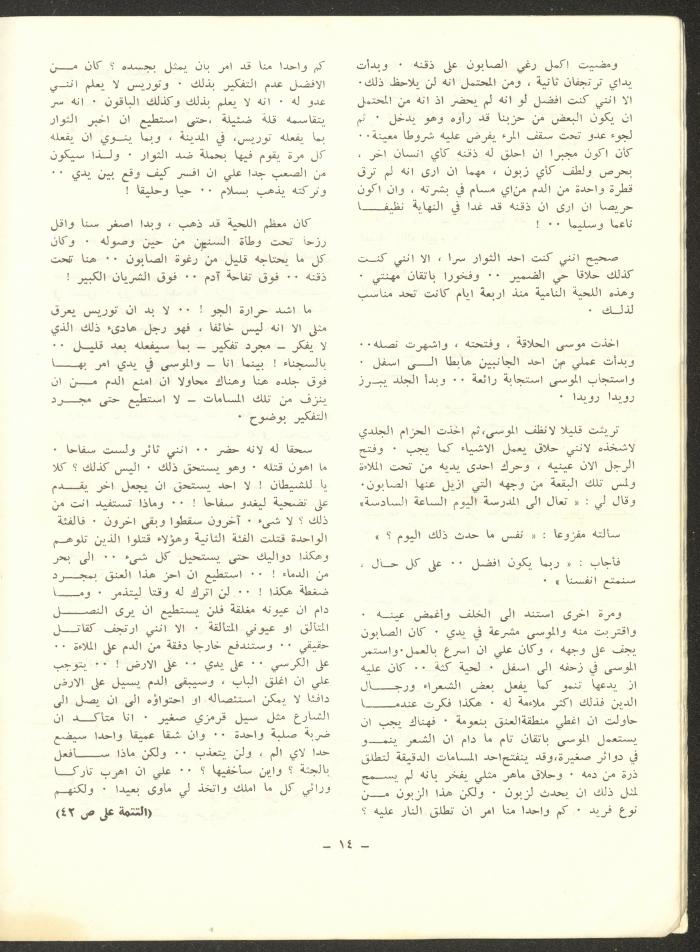 ومضيت اكمل رغي الصابون على ذقنه ٠ وبدأت
يداي ترتجفان ثانية ، ومن المحتمل انه لن يلاحظ ذلك٠
الا انني كنت افضل لو انه لم يحضر اذ انه من المحتمل
ان يكون البعض من حزبنا قد رأوه وهو يدخل ٠ ثم
لجوء عدو تحت سقف المرء يفرض عليه شروطا معينة٠٠
كان اكون مجبرا ان احلق له ذقنه كأي انسان اخر ،
بحرص ولطف كأي زبون ، مهما ان ارى انه لم ترق
قطرة واحدة من الدم من اي مسام في بشرته ، وان اكون
حريصا ان ارى ان ذقنه قد غدا في النهاية نظيفـــــا
ناعما وسليما ٠٠ !
صحيح انني كنت احد الثوار سرا ، الا انني كنـت
كذلك حلاقا حي الضمير ٠٠ وفخورا باتقان مهنتي ٠
وهذه اللحية النامية منذ اربعة ايام كانت تحد مناسب
لذلـــك ٠
اخذت موسى الحلاقة ، وفتحته ، واشهرت نصله٠٠
وبدأت عملي من احد الجانبين هابطا الـــى اسفل ٠
واستجاب الموسى استجابة رائعة ٠٠ وبدأ الجلد يبـرز
رويدا رويدا ٠
تريثت قليلا لانظف الموسى،ثم اخذت الحزام الجلدي
لاشخذه لانني حلاق يعمل الاشياء كما يجب ٠ وفتح
الرجل الان عينيه ، وحرك احدى يديه من تحت الملاءة
ولمس تلك البقعة من وجهه التي ازيل عنها الصابون٠
وقال لي : « تعال الى المدرسة اليوم الساعة السادسة»
سألته مفزوعا : « نفس ما حدث ذلك اليوم ؟ »
فأجاب : « ربما يكون افضل ٠٠ على كل حـال ،
سنمتع انفسنا » ٠
ومرة اخرى استند الى الخلف وأغمض عينــه ٠
واقتربت منه والموسى مشرعة في يدي ٠ كان الصابون
يجف على وجهه ، وكان علي ان اسرع بالعمل٠واستمر
الموسى في زحفه الى اسفل ٠ لحية كثة ٠٠ كان عليه
ان يدعها تنمو كما يفعل بعض الشعراء ورجــــال
الدين فذلك اكثر ملاءمة له ٠ هكذا فكرت عندمــــا
حاولت ان اغطي منطقةالعنق بنعومة ٠ فهناك يجب ان
يستعمل الموسى باتقان تام ما دام ان الشعر ينمـــو
في دوائر صغيرة،وقد ينفتح احد المسامات الدقيقة لتطلق
ذرة من دمه ٠ وحلاق ماهر مثلي يفخر بانه لم يسـمح
لمثل ذلك ان يحدث لزبون ٠ ولكن هذا الزبون مـــن
نوع فريد ٠ كم واحدا منا امر ان تطلق النار عليه ؟
كم واحدا منا قد امر بان يمثل بجسده ؟ كان مـــن
الافضل عدم التفكير بذلك ٠ وتوريس لا يعلم اننـي
عدو له ٠ انه لا يعلم بذلك وكذلك الباقون ٠ انه سر
يتقاسمه قلة ضئيلة ،حتى استطيع ان اخبر الثوار
بما يفعله توريس، في المدينة ، وبما ينـوي ان يفعله
كل مرة يقوم فيها بحملة ضد الثوار ٠ ولـذا سيكون
من الصعب جدا علي ان افسر كيف وقع بين يدي ٠٠
وتركته يذهب بسلام ٠٠ حيا وحليقا !
كان معظم اللحية قد ذهب ، وبدا اصغر سنا واقل
رزحا تحت وطاة السنين من حين وصوله ٠ وكان
كل ما يحتاجه قليل من رغوة الصابون ٠٠ هنا تحت
ذقنه ٠٠ فوق تفاحة آدم ٠٠ فوق الشريان الكبير !
ما اشد حرارة الجو ! ٠٠ لا بد ان توريس يعرق
مثلي الا انه ليس خائفا ، فهو رجل هادىء ذلك الذي
لا يفكر ـ مجرد تفكير ـ بما سيفعله بعد قليـل ٠٠
بالسجناء ! بينما انا ـ والموسى في يدي امر بهـــا
فوق جلده هنا وهناك محاولا ان امنع الدم مـــن ان
ينزف من تلك المسامات ـ لا استطيع حتى مجـــرد
التفكير بوضوح ٠
سحقا له لانه حضر ٠٠ انني ثائر ولست سفاحا ٠
ما اهون قتله ٠ وهو يستحق ذلك ٠ اليس كذلك ؟ كلا
يا للشيطان ! لا احد يستحق ان يجعل اخر يقــدم
على تضحية ليغدو سفاحا ! ٠٠ وماذا تستفيد انت من
ذلك ؟ لا شيء ٠ آخرون سقطوا وبقى اخرون ٠ فالفئة
الواحدة قتلت الفئة الثانية وهؤلاء قتلوا الذين تلوهـم
وهكذا دواليك حتى يستحيل كل شيء ٠٠ الى بحر
من الدماء ! ٠٠ استطيع ان احز هذا العنق بمجــرد
ضغطة هكذا ! ٠٠ لن اترك له وقتا ليتذمر ٠ ومــــا
دام ان عيونه مغلقة فلن يستطيع ان يرى النصـــل
المتألق او عيوني المتألقة ٠ الا انني ارتجف كقاتــل
حقيقي ٠٠ وستندفع خارجا دفقة من الدم على الملاءة ٠٠
على الكرسي ٠٠ على يدي ٠٠ على الارض ! ٠٠ يتوجب
علي ان اغلق الباب ، وسيبقى الدم يسيل على الارض
دافئا لا يمكن استئصاله او احتواؤه الى ان يصل الى
الشارع مثل سيل قرمزي صغير ٠ انا متأكــد ان
ضربة صلبة واحدة ٠٠ وان شقا عميقا واحدا سيضع
حدا لاي الم ، ولن يتعذب ٠٠ ولكن ماذا ســــافعل
بالجثة ؟ واين سأخفيها ؟ ٠٠ علي ان اهرب تاركــا
ورائي كل ما املك واتخذ لي ماوى بعيدا ٠ ولكنهـم
(التتمة على ص ٤٢)
ـ ١٤ ـ